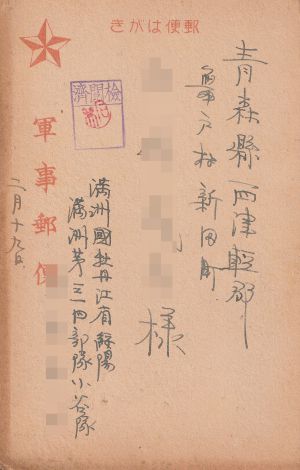 郵便はがき
青森縣西津輕郡
村新田町
様
滿洲國牡丹江省綏陽
滿洲第三一四部隊小谷隊
檢閲濟
軍事郵便
二月十九日